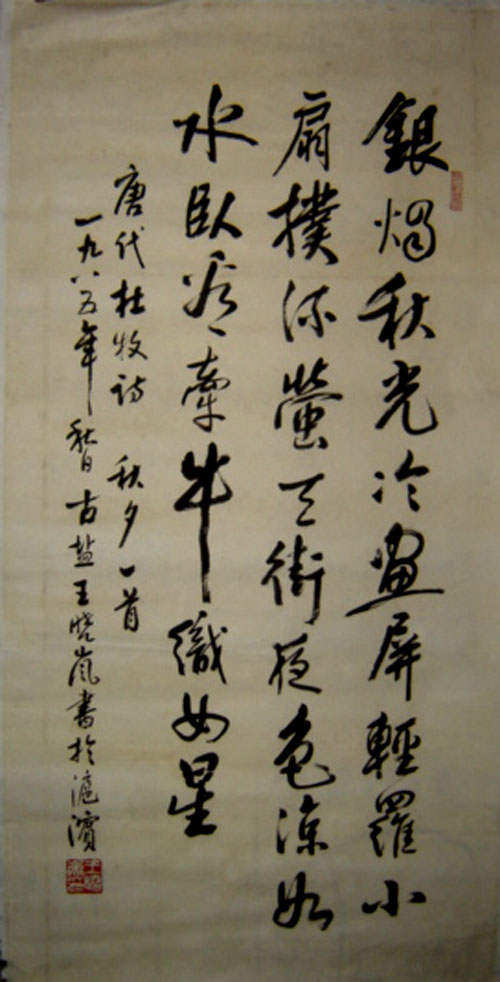 銀燭秋光冷畫屏輕羅小
扇撲流螢天街夜色涼如
水臥看牽牛織女星
唐代杜牧詩 秋夕一首
一九八五年秋日古盐王晓岚書於滬濱